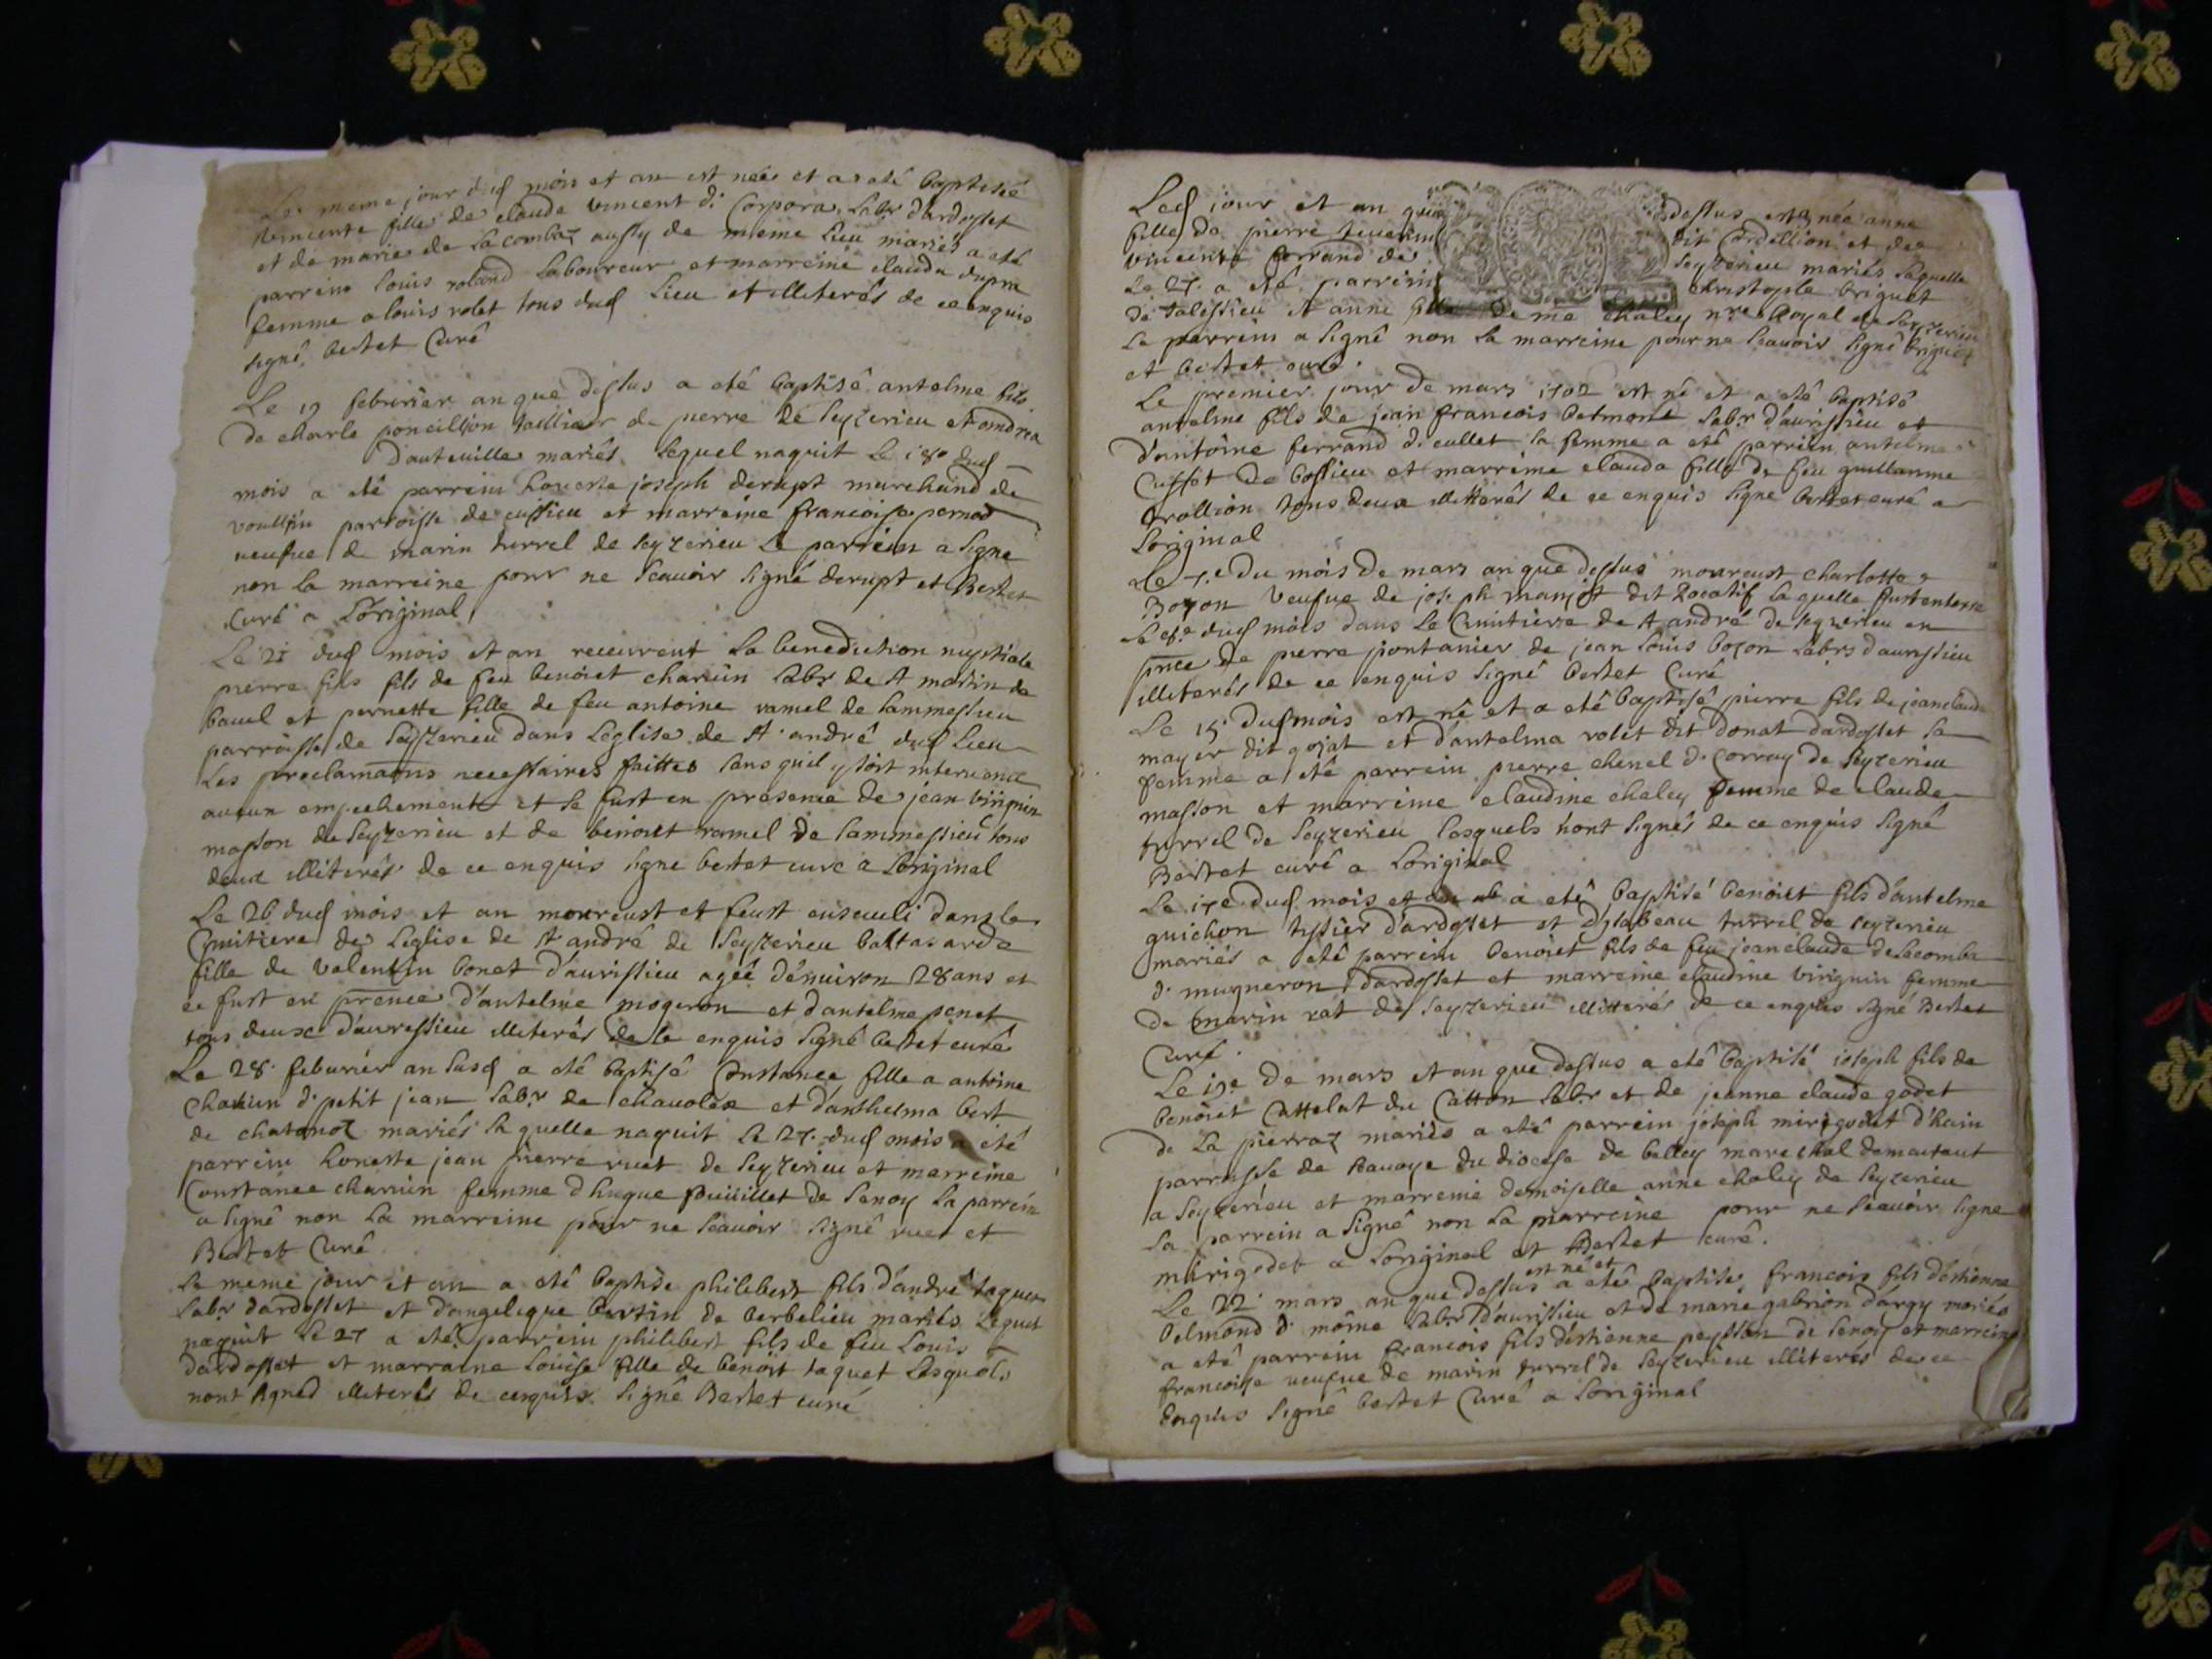 Le meme jour dud mois et an est neé et a eté baptisé
vincente fille de claude vincent d. Corpora labr d'ardosset
et de marie de lacombaz aussy de meme lieu mariés a eté
parrein louis roland laboureur et marreine clauda
femme a louis rolet tous dud lieu et illiterés de ce enquis
signé bertet Curé
Le 19 febvrier an que dessus a eté baptisé antelme fils
de charle poncillion taillieur de pierre de seyzerieu et andrea
d'auteville mariés lequel naquit le 18e dud
mois a eté parrein honeste joseph derupt marchand de
paroisse de cussieu et marreine francoise pernod
veufve de marin turrel de seyzerieu le parrein a signé
non la marreine pour ne scavoir signé derupt et Bertet
Curé a loriginal
Le 21 dud mois et an receurent la benediction nuptiale
pierre fils fils de feu benoict charvin labr de st martin de
bavel et pernette fille de feu antoine ramel de lammessieu
parroisse de seyzerieu dans leglise de st andré dud lieu
les proclamaons necessaires faittes sans quil y soit intervenu
aucun empechement et se fust en presence de jean virignin
masson de seyzerieu et de benoict ramel de lammessieu tous
deux illiterés de ce enquis signé bertet curé a loriginal
Le 26 dud mois et an mourust et feust enseveli dans le
Cymitiere de leglise de st andré de seyzerieu baltasarde
fille de valentin bonet d'aurissieu ageé d'environ 28 ans et
ce fust en prence d'antelme mogeron et d'antelme penet
tous deux d'auressieu illiterés de ce enquis signé bertet curé
Le 28 febvrier an susd a eté baptisé Constance fille a antoine
charvin d. petit jean labr de chavolex et d'anthelma bert
de chatonoz mariés la quelle naquit le 27. dud mois a eté
parrein honeste jean pierre ruet de seyzerieu et marreine
Constance charvin femme d hugue de lenoy le parrein
a signé non la marreine pour ne scavoir signé ruet et
Bertet Curé
Le meme jour et an a eté baptisé philibert fils d'andré taquet
labr d'ardosset et d'angelique bertin de berbelieu mariés lequel
naquit le 27 a eté parrein philibert fils de feu louis
d'ardosset et marraine louise fille de benoit taquet lesquels
nont signed illiterés de ce enquis. signé Bertet curé
Led jour et an que dessus est née anne
fille de pierre tevenin dit Cordellion et de
vincente ferrand de seyzerieu mariés laquelle
le 27. a eté parrein christople briguet
de talissieu et anne fille de me chaley nre Royal de seyzerieu
le parrein a signé non la marreine pour ne scavoir signé briguet
et bertet curé
Le premier jour de mars 1702 est né et a eté baptisé
antelme fils de jean francois belmont labr d'aurissieu et
d'antoine ferrand d. cullet sa femme a eté parrein antelme
Cusset de bossieu et marreine clauda fille de feu guillaume
trollion tous deux illitterés de ce enquis signé bertet curé a
loriginal
Le 7.e du mois de mars an que dessus mourust charlotte
Bozon veufve de joseph manjot dit laquelle fust enterré
le 8.e dud mois dans le Cimitiere de st andré de seyzerieu en
prnce de pierre pontanier de jean louis bozon labrs d'auressieu
illiterés de ce enquis signé bertet Curé
Le 15 dud mois est né et a eté baptisé pierre fils de jean claude
mayer dit gojat et d'antelma rolet dit donat d'ardosset sa
femme a eté parrein pierre chenel d. Corray de seyzerieu
masson et marreine claudine chaley femme de claude
turrel de seyzerieu lesquels nont signés de ce enquis signé
Bertet curé a loriginal
Le 17e dud. mois et a eté baptisé benoict fils d'antelme
guichon tissier d'ardosset et d'ysabeau turrel de seyzerieu
mariés a eté parrein benoict fils de feu jean claude delacomba
d. mugneron d'ardosset et marreine claudine virignin femme
de marin rat de seyzerieu illitterés de ce enquis signé Bertet
Curé.
Le 19e de mars et an que dessus a eté baptisé joseph fils de
benoict Cattelat du Catton labr et de jeanne claude godet
de la pierraz mariés a eté parrein joseph mirigodet d'hein
parroisse de savoye du diocese de belley marechal demeutant
a seyzerieu et marreine demoiselle anne chaley de seyzerieu
le parrein a signé non la marreine pour ne scavoir signé
mirigodet a loriginal et Bertet curé.
Le 22 mars an que dessus est né et a eté baptisé francois fils d'estienne
belmond d. moine labr d'aurissieu et de marie gabrion d'argy mariés
a eté parrein francois fils d'estienne peysson de lenoy et marreine
francoise veufve de marin turrel de seyzerieu illiterés de ce
enquis signé bertet Curé a loriginal